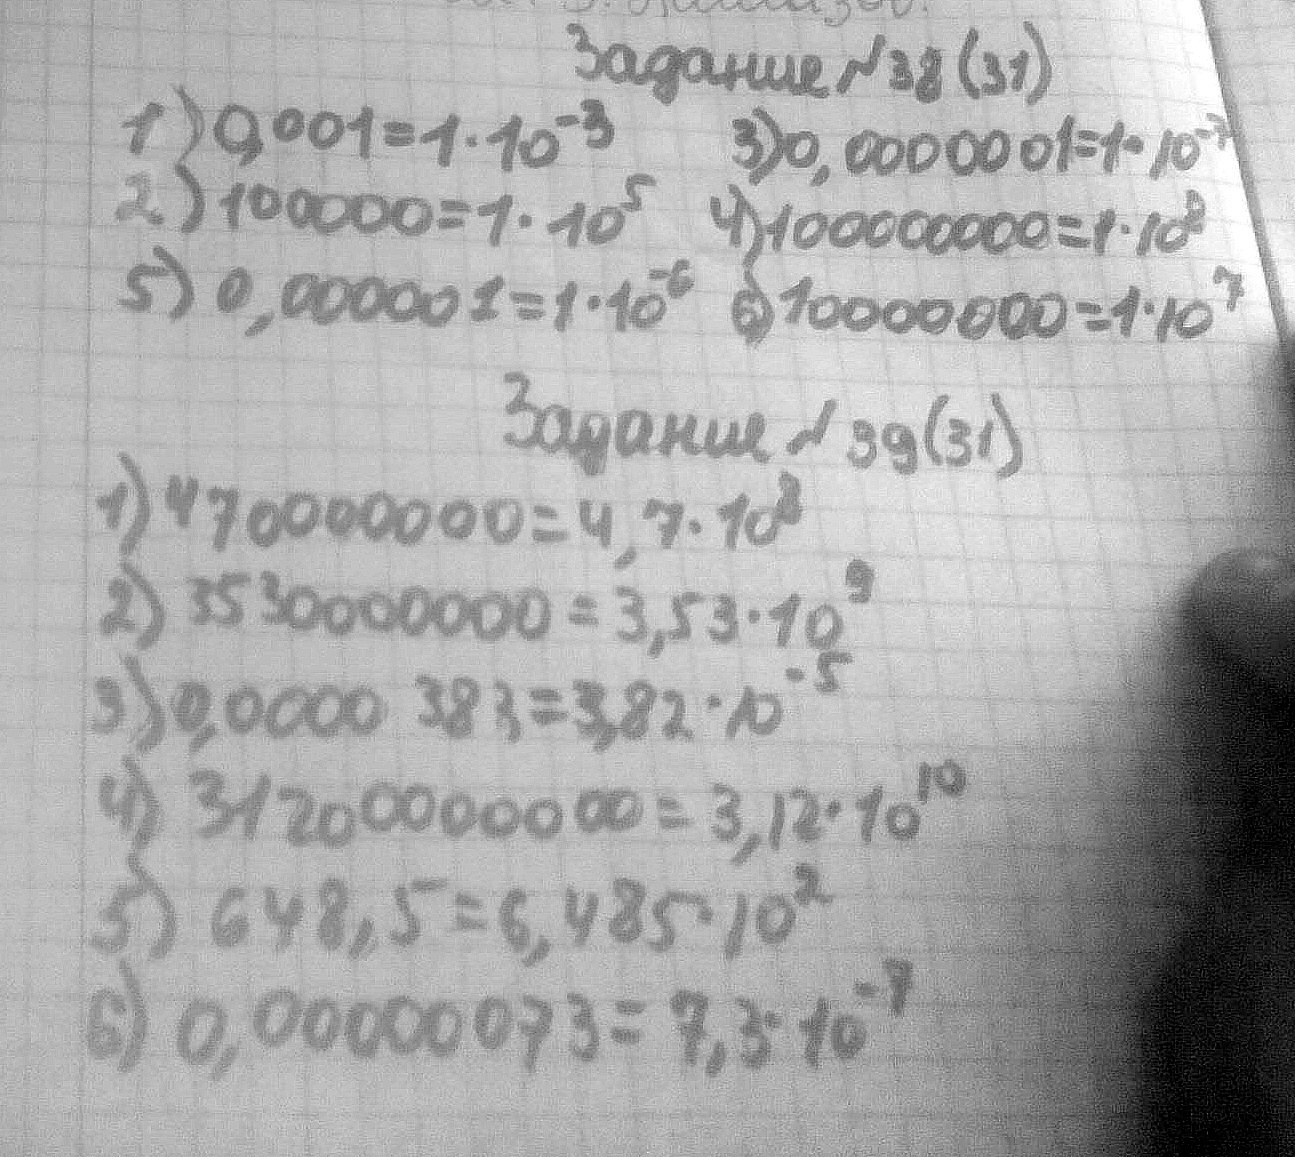 Задание №38(31)
1) 0,001=1·10⁻³ 3) 0,0000001=1·10⁻⁷
2) 100000=1·10⁵ 4) 100000000=1·10⁸
5) 0,000001=1·10⁻⁶ 6) 10000000=1·10⁷
Задание №39(31)
1) 470000000=4,7·10⁸
2) 3530000000=3,53·10⁹
3) 0,0000383=3,82·10⁻⁵
4) 31200000000=3,12·10¹⁰
5) 648,5=6,485·10²
6) 0,00000073=7,3·10⁻⁷